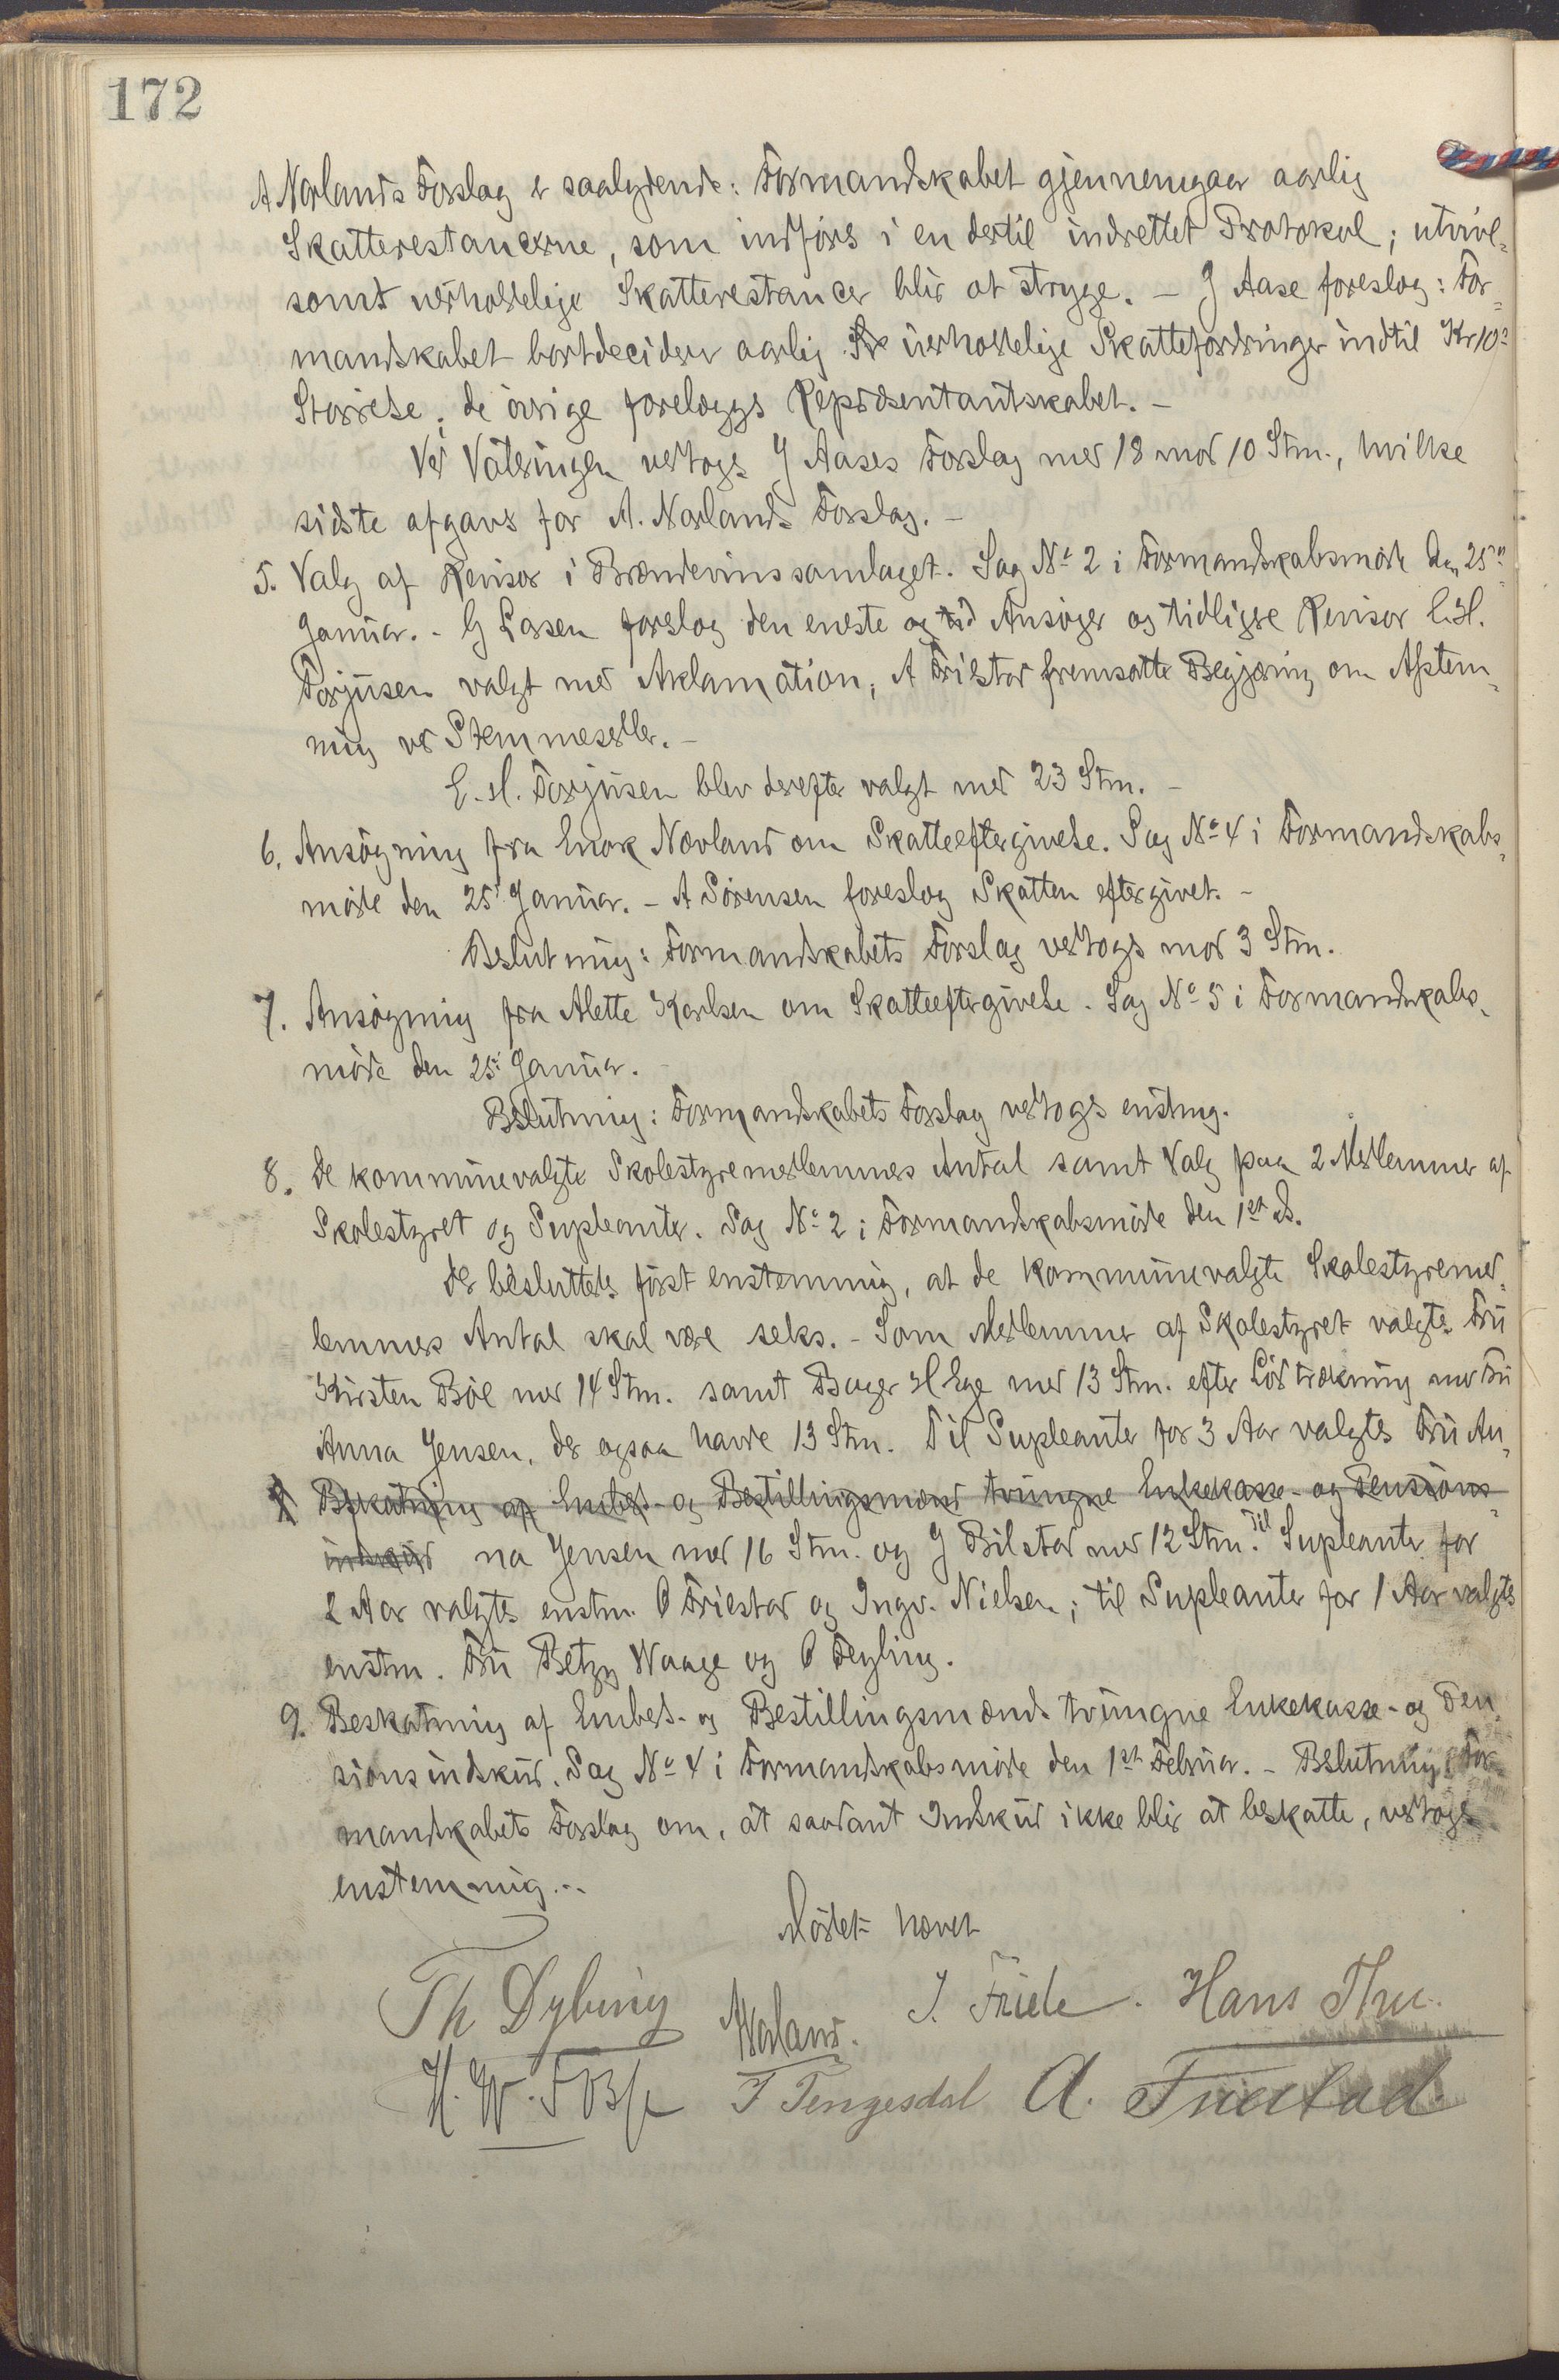 172
A Norlands Forslag er saalydende: Formandskabet gjennemgaar aarlig
Skatterestancerne, som indføres i en dertil indrettet Protokol; utvivl-
somt uerholdelige Skatterestancer blir at stryge. – J Aase foreslog: For-
mandskabet bortdeciderer aarlig Sk uerholdelige Skattefordringer indtil Kr 10
Størrelse; de øvrige forelægges Repræsentantskabet. –
Ved Voteringen vedtoges J Aases Forslag med 18 mod 10 Stm., hvilke
sidste afgaves for A. Norlands Forslag. –
5. Valg af Revisor i Brændevinssamlaget. Sag No 2 i Formandskabsmøde den 25de
Januar. – G Larsen foreslog den eneste og tid Ansøger og tidligere Revisor E. H.
Torjusen valgt med Aklamation; A Friestad fremsatte Begjæring om Afstem-
ning ved Stemmesedler. –
E. H. Torjusen blev derefter valgt med 23 Stm. –
6. Ansøgning fra Enok Nævland om Skatteeftergivelse. Sag No 4 i Formandskabs-
møde den 25 Januar. – A Sørensen foreslog Skatten eftergivet. –
Beslutning: Formandskabets Forslag vedtoges mod 3 Stm.
7. Ansøgning fra Alette Karlsen om Skatteeftergivelse. Sag No 5 i Formandskabs-
møde den 25. Januar.
Beslutning: Formandskabets Forslag vedtoges enstmg.
8. De kommunevalgte Skolestyremedlemmers Antal samt Valg paa 2 Medlemmer af
Skolestyret og Supleanter. Sag No 2 i Formandskabsmøde den 1st ds.
Der besluttedes først enstemmig, at de kommunevalgte Skolestyremed-
lemmers Antal skal være seks. – Som Medlemmer af Skolestyret valgtes Fru
Kirsten Bøe med 14 Stm. samt Bager H Ege med 13 Stm. efter Lodtrækning med Fru
Anna Jensen, der ogsaa havde 13 Stm. Til Supleanter for 3 Aar valgtes Fru An-
9 Beskatning af Embeds- og Bestillingsmænds tvungne Enkekasse- og Pensions-
indskud na Jensen med 16 Stm. og J Bilstad med 12 Stm. Til Supleanter for
2 Aar valgtes enstm. O Friestad og Ingv. Nielsen; til Supleanter for 1 Aar valgtes
enstm. Fru Betzy Waage og O Feyling.
9. Beskatning af Embeds- og Bestillingsmænds tvungne Enkekasse- og Pen-
sionsindskud. Sag No 4 i Formandskabsmøde den 1st Februar. – Beslutning: For-
mandskabets Forslag om, at saadant Indskud ikke blir at beskatte, vedtoges
enstemmig. –
Mødet hævet
Th Dybing Norland. J. Friele. Hans Thu.
H. W. T Tengesdal A. Friestad